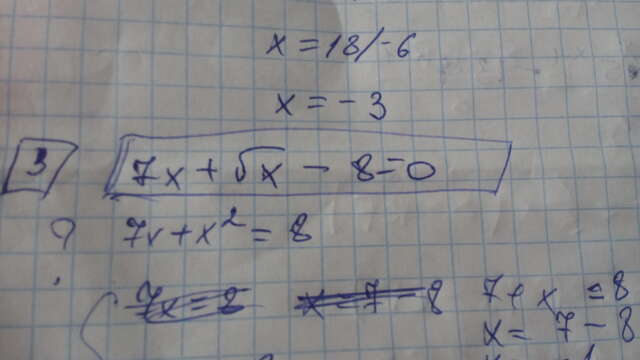 x = 18/-6
x = - 3
3 7x + √x - 8 = 0
? 7x + x² = 8
7x = 8 x = 7 - 8 7 + x = 8
x = 7 - 8